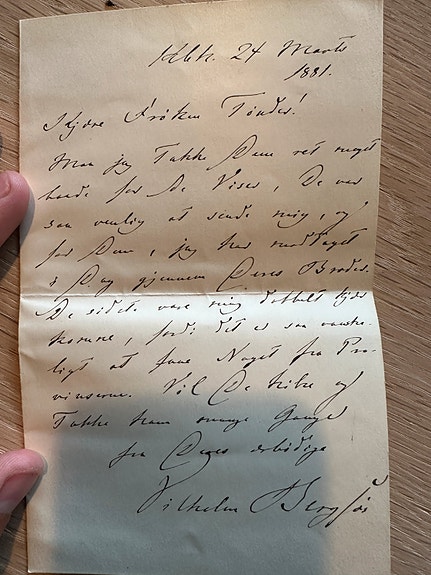 Kbh. 24 Marts
1881.
Kjære Frøken Tønder!
Maa jeg Takke Dem ret meget
baade for De Viser, De var
saa venlig at sende mig, og
for Dem, jeg har modtaget
i Dag gjennem Deres Broder.
De sidste vare mig dobbelt kjær
komne, fordi det er saa vanske-
ligt at faae Noget fra Pro-
vinserne. Vil De hilse og
Takke ham mange Gange
fra Deres ærbødige
Vilhelm Bergsøe